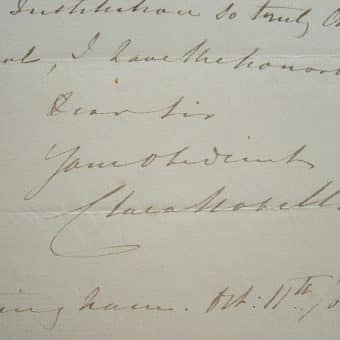 Institution so truly
I have the honor
Dear Sir
Your obedient
Clara Novello
Oct: 11th